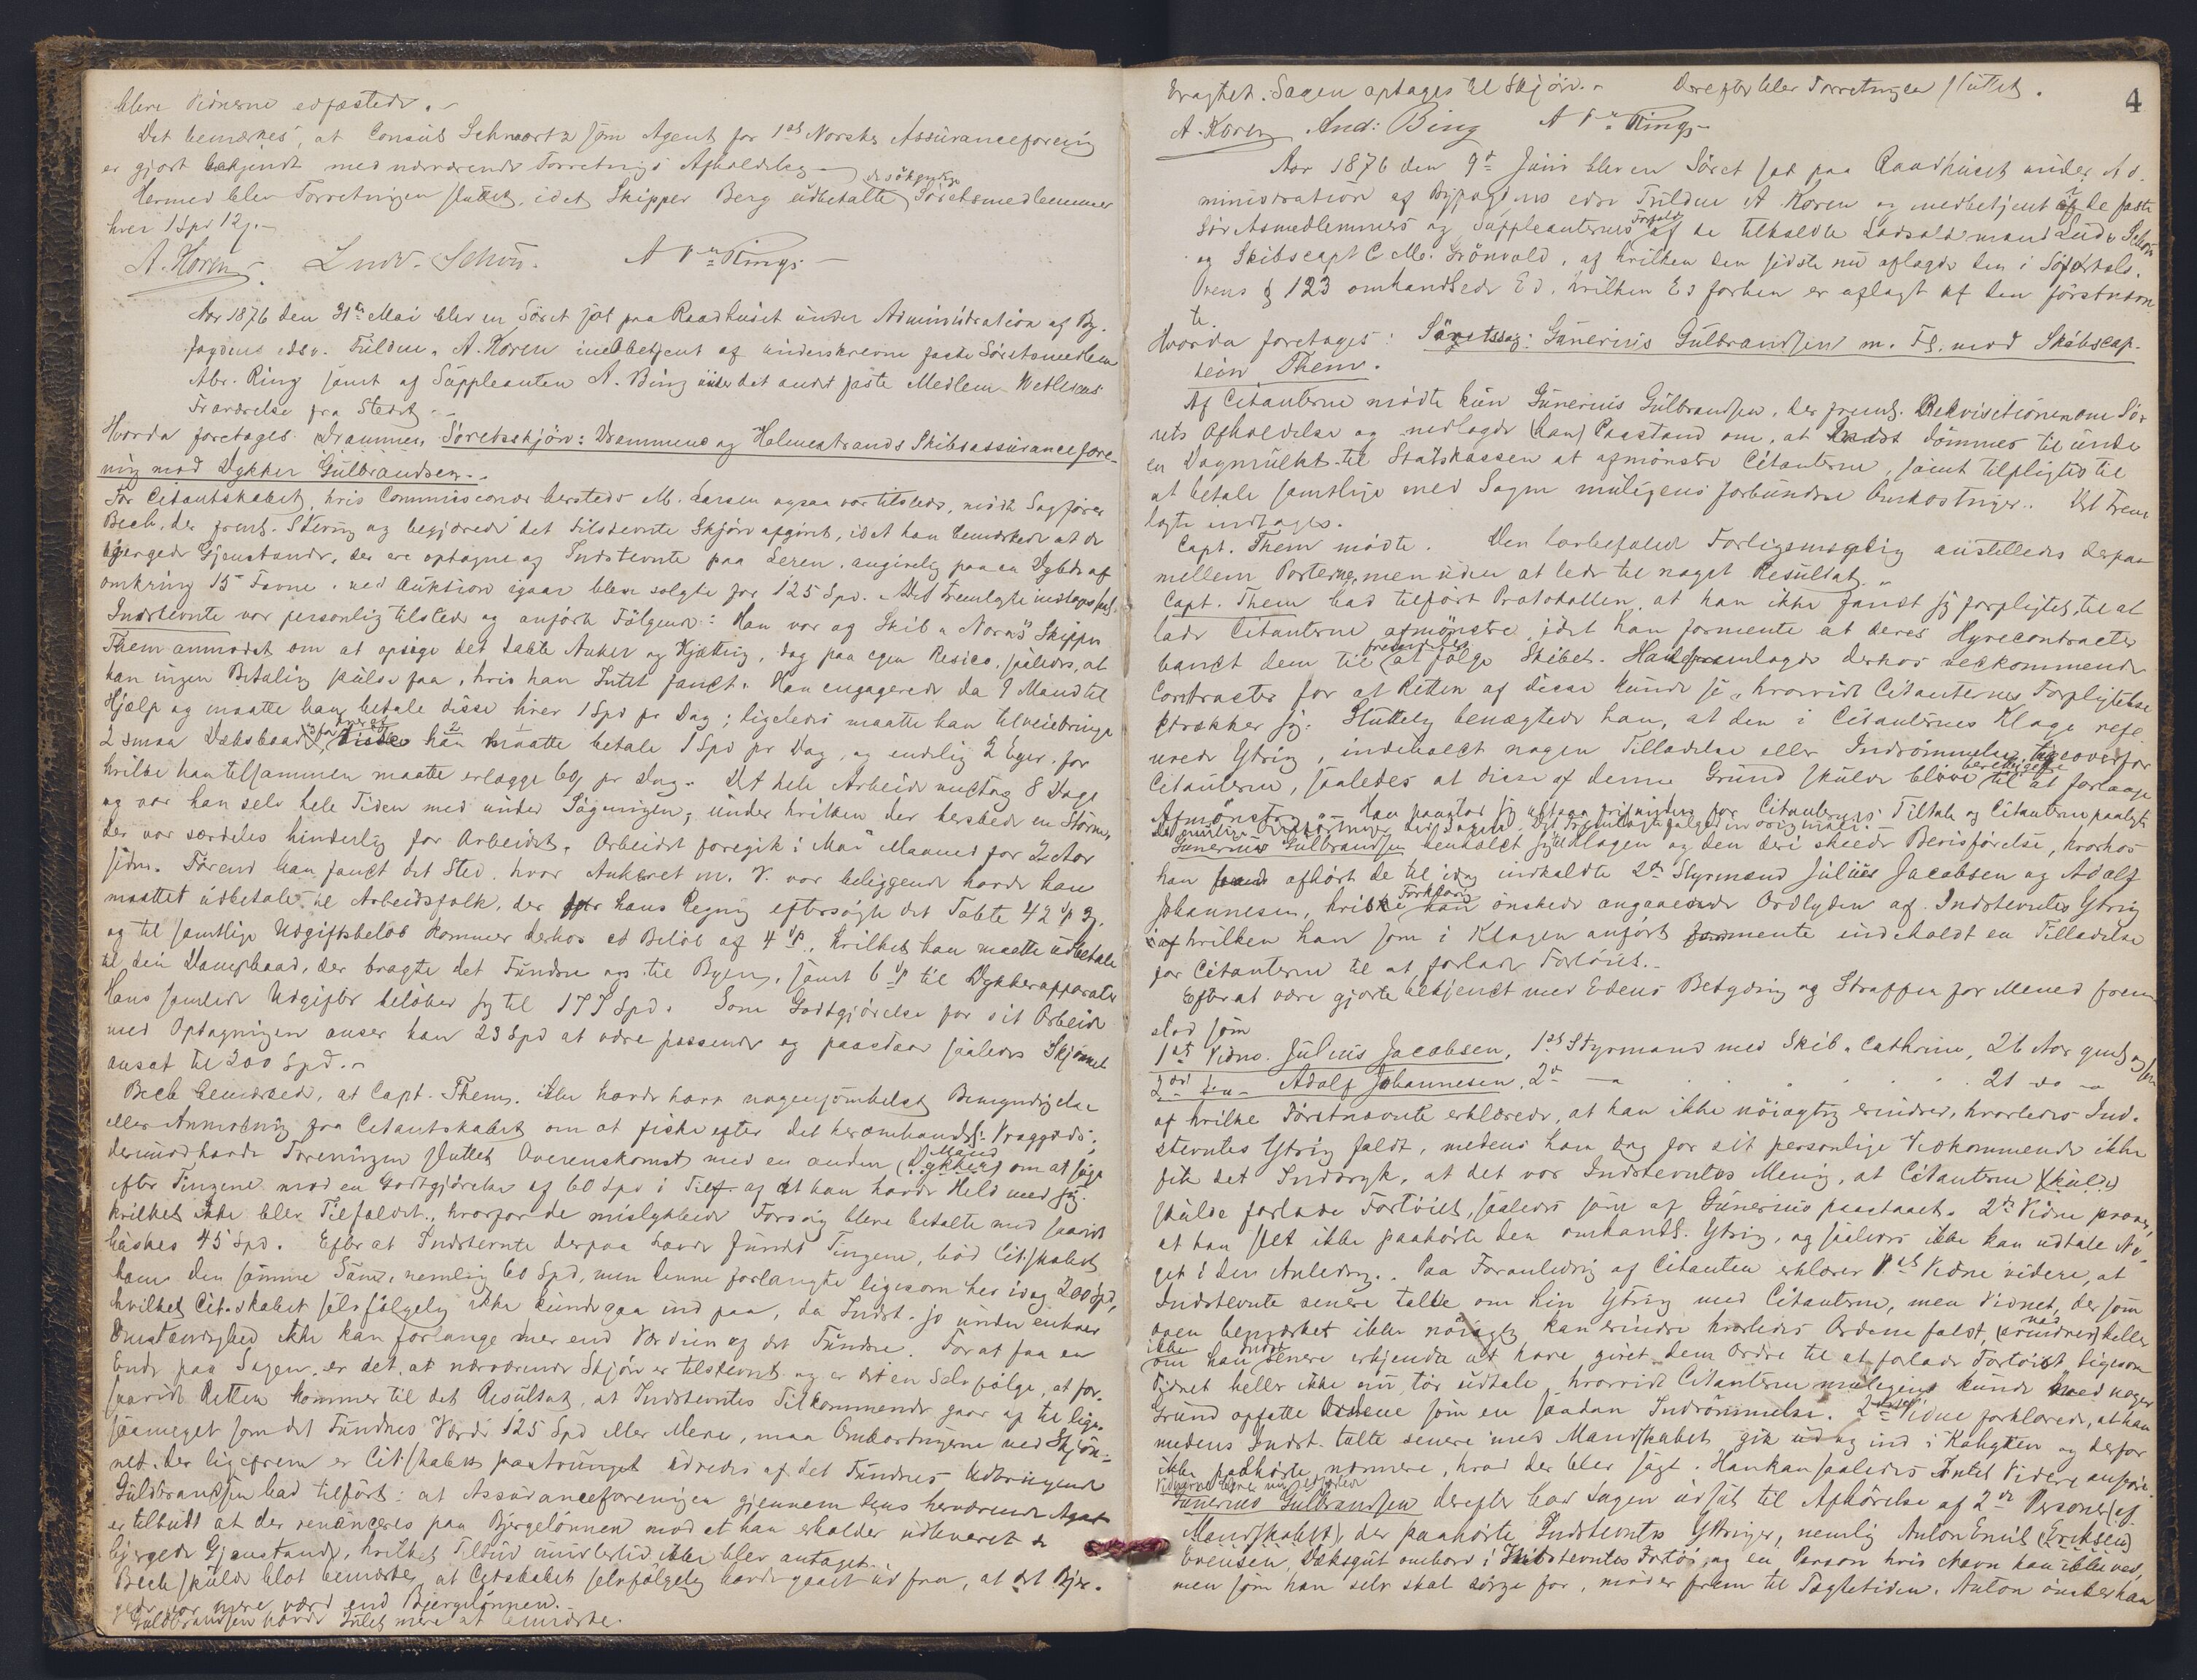 blevne Vidnerne edfæstede.
Det bemærkes, at Consul Schwartz som Agent for 1ste Norske Assuranceforening
er gjort bekjendt med nærværende Forretnings Afholdelse.
Hermed blev Forretningen sluttet, idet Skipper Berg udbetalte Søretsmedlemmer
hver 1 Spd 12 s.
A. Koren Ludv. Schøn. A Vn Rings
Aar 1876 den 31te Mai blev en Søret sat paa Raadhuset under Administration af By-
fogdens edsv. Fuldm. A. Koren medbetjent af underskrevne faste Søretsmedlem
Abr. Ring samt af Suppleanten A. Bing under det andet faste Medlem Wetlesens
Fraværelse fra Stedet.
Hvorda foretages Drammen Søretsskjøn: Drammens og Holmestrands Skibsassurancefore-
ning mod Dykker Gulbrandsen.
For Citantskabet, hvis Commissionær hersteds M. Larsen ogsaa var tilstede, mødte Sagfører
Bech, der freml. Stevning og begjærede det tilstevnte Skjøn afgivet, idet han bemærkede at de
bjergede Gjenstande, der ere optagne af Indstevnte paa Leren, angivelig paa en Dybde af
omkring 15 Favne, ved Auktion igaar bleve solgte for 125 Spd. Det Fremlagte indtages
Indstevnte var personlig tilstede og anførte Følgende: Han var af Skib "Nornes" Skipper
Them anmodet om at opsøge det tabte Anker og Kjætting, dog paa egen Resico, saaledes, at
han ingen Betaling skulde faa, hvis han Intet fandt. Han engagerede da 9 Mand til
Hjælp og maatte han betale disse hver 1 Spd pr Dag; ligeledes maatte han tilveiebringe
2 smaa Dæksbaade, for hver af disse han maatte betale 1 Spd pr Dag, og endelig 2 Eger, for
hvilke han tilsammen maatte erlægge 60 s pr Dag. Det hele Arbeide medtog 8 Dage
og var han selv hele Tiden med under Søgningen, under hvilken der herskede en Storm,
der var særdeles hinderlig for Arbeidet. Arbeidet foregik i Mai Maaned for 2 Aar
siden. Førend han fandt det Sted, hvor Ankeret m. V. var beliggende havde han
maattet udbetale til Arbeidsfolk, der for hans Regning eftersøgte det Tabte 42 Sp
og til samtlige Udgiftsbeløb kommer derhos et Beløb af 4 Sp, hvilket han maatte udbetale
til den Dampbaad, der bragte det Fundne op til Byen, samt 6 Sp til Dykkerapparater
Hans samlede Udgifter beløber sig til 177 Spd. Som Godtgjørelse for sit Arbeide
med Optagningen anser han 23 Spd at være passende og paastaar saaledes Skjønnet
ansat til 200 Spd.
Bech bemærked, at Capt. Them. ikke havde havt nogensomhelst Bemyndigelse
eller Anmodning fra Citantskabet om at fiske efter det heromhandl: Vraggods;
derimod havde Foreningen sluttet Overenskomst med en anden Mand (Dykker) om at søge
efter Tingene mod en Godtgjørelse af 60 Spd i Tilf. af at han havde Held med sig.
hvilket ikke blev Tilfældet, hvorfor de mislykkede Forsøg bleve betalte med saavidt
huskes 45 Spd. Efter at Indstevnte derpaa havde fundet Tingene, bød Cit.skabet
ham den samme Sum, nemlig 60 Spd, men denne forlangte ligesom her idag 200 Spd,
hvilket Cit.skabet selvfølgelig ikke kunde gaa ind paa, da Indst. jo under enhver
Omstændighed ikke kan forlange mer end Værdien af det Fundne. For at faa en
Ende paa Sagen, er det, at nærværende Skjøn er tilstevnt og er det en Selvfølge, at for-
saavidt Retten kommer til det Resultat, at Indstevntes Tilkommende gaar op til lige
saameget som det Fundnes Værdi 125 Spd eller Mere, maa Omkostningerne ved Skjøn-
net, der ligefrem er Cit.skabet paatvunget udredes af det Fundnes Udbringende
Guldbrandsen bad tilført: at Assuranceforeningen gjennem dens herværende Agent
er tilbudt at der renonceres paa Bjergelønnen mod at han erholder udleveret de
bjergede Gjenstande, hvilket Tilbud imidlertid ikke blev antaget.
Bech skulde blot bemærke, at Citskabet selvfølgelig havde gaaet ud fra, at det Bjer-
gede var mere værd end Bjergelønnen.
Guldbrandsen havde Intet mere at bemærke.
4
bragtes. Sagen optages til Skjøn. Derefter blev Forretningen sluttet.
A. Koren And: Bing A Vn Rings
Aar 1876 den 9de Juni blev en Søret sat paa Raadhuset under Ad-
ministration af Byfogdens edsv Fuldm A Koren og medbetjent i de faste
Søretsmedlemmers og Suppleanternes Forfald af de tilkaldte Lodsoldermand Ludv Schøn
og Skibscapt C. M. Grönvold, af hvilken den sidste nu aflagde den i Søfartslo-
vens § 123 omhandlede Ed, hvilken Ed forhen er aflagt af den førstnævn-
te.
Hvorda foretages: Søretssag: Gunerius Gulbrandsen m. Fl. mod Skibscap-
tein Them.
Af Citanterne mødte kun Gunerius Gulbrandsen, der freml. Rekvisitionen om Sø-
rets Afholdelse og nedlagde (han) Paastand om, at Indst dømmes til under
en Dagmulkt til Statskassen at afmønstre Citanterne, samt tilpligtes til
at betale samtlige med Sagen muligens forbundne Omkostninger. Det Frem-
lagte indtages.
Capt. Them mødte. Den lovbefalede Forligsmægling anstilledes derpaa
mellem Parterne, men uden at lede til noget Resultat.
Capt. Them bad tilført Protokollen, at han ikke fandt sig forpligtet til at
lade Citanterne afmønstre, idet han formente at deres Hyrecontracter
bandt dem til fremdeles at følge Skibet. Han fremlagde derhos vedkommende
Contracter for at Retten af disse kunde se, hvorvidt Citanternes Forpligtelse
strækker sig. Sluttelig benægtede han, at den i Citanternes Klage refe-
rerede Ytring, indeholdt nogen Tilladelse eller Indrømmelse ligeoverfor
Citanterne, saaledes at disse af denne Grund skulde blive berettigede til at forlange
Afmønstring. Han paastod sig aldeles frifunden for Citanternes Tiltale og Citanterne paalagt
Gunerius Gulbrandsen henholdt sig til Klagen og den deri skeede Bevisførelse, hvorhos
han afhørt de til idag indkaldte 2de Styrmænd Julius Jacobsen og Adolf
Johannesen, hvis Forklaring han ønskede angaaende Ordlyden af Indstevntes Ytring
af hvilken han som i Klagen anført formente indeholdt en Tilladelse
for Citanterne til at forlade Fortøiet.
Efterat være gjorte bekjendt med Edens Betydning og Straffen for Mened frem-
stod som
1ste Vidne. Julius Jacobsen, 1ste Styrmand med Skib "Cathrine, 26 Aar gml og
2det do Adolf Johannesen, 2de — 21 do
af hvilke Førstnævnte erklærede, at han ikke nøiagtig erindrer, hvorledes Ind-
stevntes Ytring faldt, medens han dog for sit personlige Vedkommende ikke
fik det Indtryk, at det var Indstevntes Mening, at Citanterne (skulde)
skulde forlade Fortøiet, saaledes som af Gunerius paastaaet. 2det Vidne prover,
at han slet ikke paahørte den omhandl. Ytring, og saaledes ikke kan udtale No-
get i den Anledning. Paa Foranledning af Citanten erklærer 1ste Vidne videre, at
Indstevnte senere talte om hin Ytring med Citanterne, men Vidnet, der som
oven bemærket ikke nøiagtig kan erindre hvorledes Ordene faldt, (erindrer) heller
ikke om han Indst senere erkjendte at have givet dem Ordre til at forlade Fortøiet, ligesom
Vidnet heller ikke nu tør udtale, hvorvidt Citanterne muligens kunde med nogen
Grund opfatte Ordene som en saadan Indrømmelse. 2det Vidne forklarede, at han
medens Indst. talte senere med Mandskabet gik ud og ind i Kahytten og derfor
ikke paahørte nærmere, hvad der blev sagt. Han kan saaledes Intet Videre anføre.
Vidnerne bleve nu edfæstede
Gunerius Gulbrandsen derefter bad Sagen udsat til Afhørelse af 2de Personer (af
Mandskabet), der paahørte Indstevntes Ytringer, nemlig Anton Emil (Eriksen)
Evensen, Dæksgut ombord i Indstevntes Fartøi, og en Person hvis Navn han ikke ved,
men som han selv skal sørge for, møder frem til Tægtetiden. Anton ønsker han